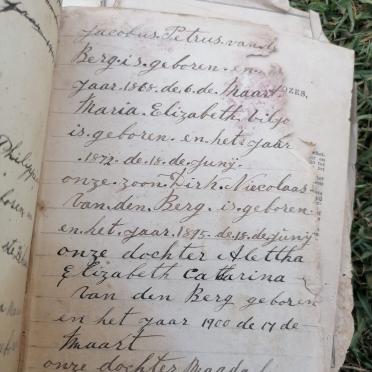 Jacobus Petrus van d
Berg is geboren en
Jaar 1868 de 6 de Maart
Maria Elizabeth
is geboren en het Jaar
1872 de 18 de Junij
onze zoon Dirk Nicolaas
van den Berg is geboren
en het Jaar 1895 de 18 de Junij
onze dochter Alettha
Elizabeth Catharina
van den Berg geboren
en het Jaar 1900 de 17 de
Maart
onze dochter